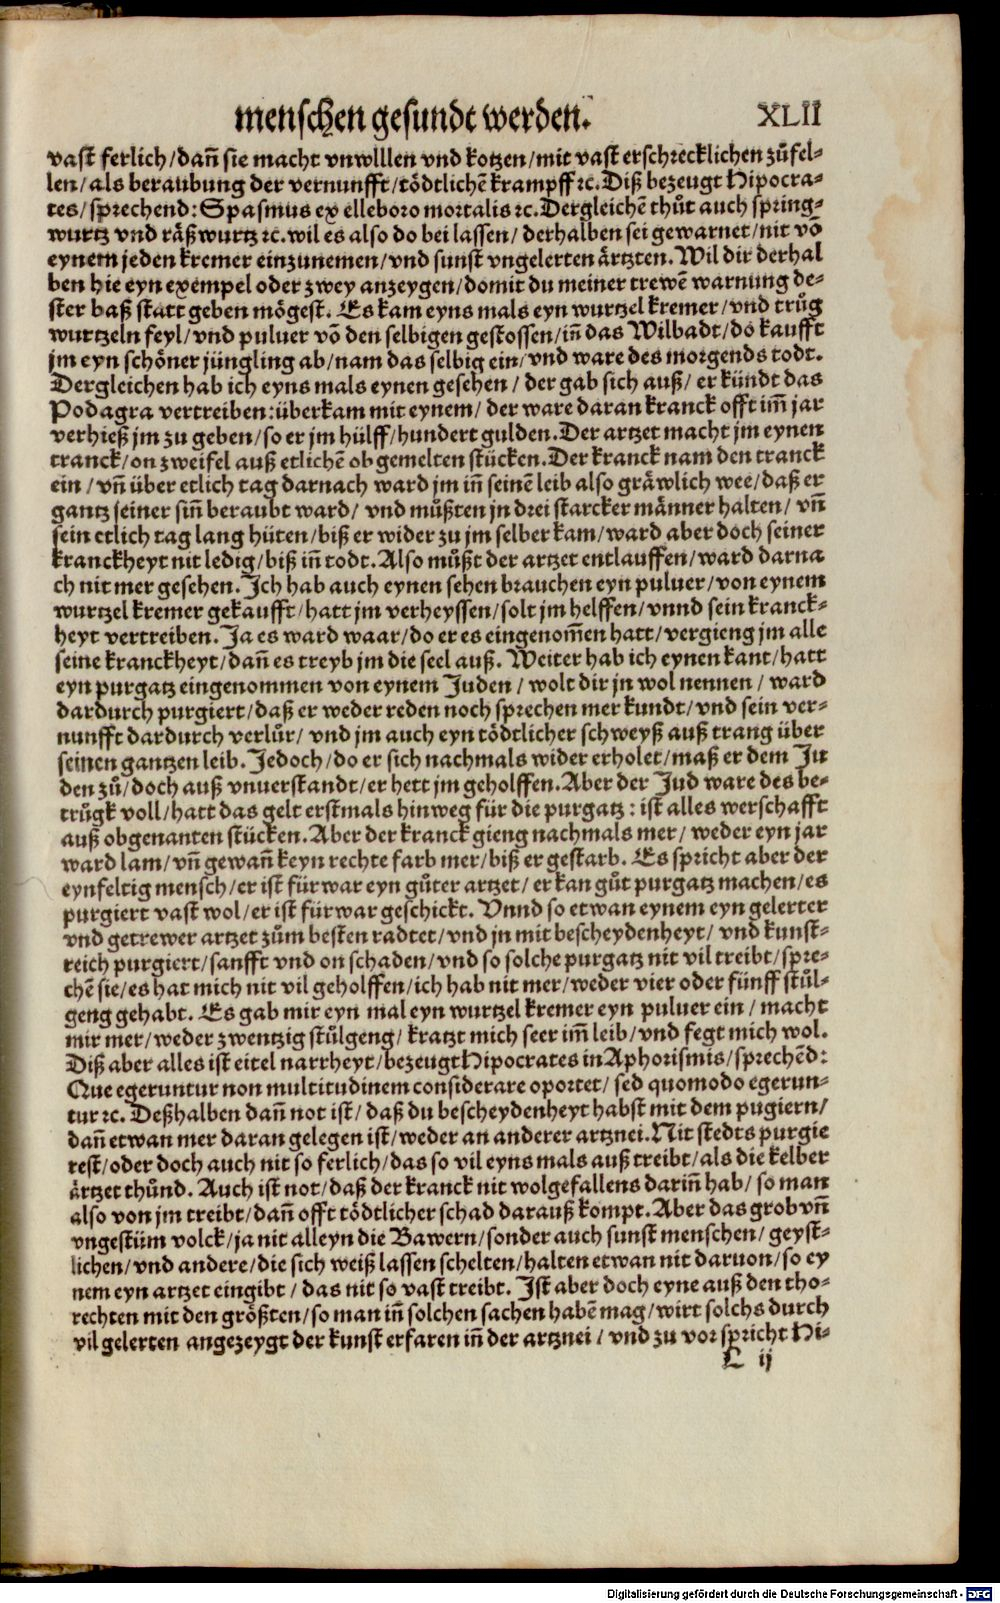 menschen gesundt werden. XLII
vast ferlich/dañ sie macht vnwlllen vnd kotzen/mit vast erschrecklichen zůfel-
len/als beraubung der vernunfft/tödtlichē krampff ꝛc. Diß bezeugt Hipocra-
tes/sprechend: Spasmus ex elleboro mortalis ꝛc. Dergleichē thůt auch spring-
wurtz vnd räßwurtz ꝛc. wil es also do bei lassen/ derhalben sei gewarnet/nit võ
eynem jeden kremer einzunemen/vnd sunst vngelerten ärtzten. Wil dir derhal
ben hie eyn exempel oder zwey anzeygen/domit du meiner trewē warnung de-
ster baß statt geben mögest. Es kam eyns mals eyn wurtzel kremer/vnd trůg
wurtzeln feyl/vnd puluer võ den selbigen gestossen/iñ das Wilbadt/do kaufft
jm eyn schöner jüngling ab/nam das selbig ein/vnd ware des morgends todt.
Dergleichen hab ich eyns mals eynen gesehen/ der gab sich auß/ er kündt das
Podagra vertreiben:überkam mit eynem/ der ware daran kranck offt im̃ jar
verhieß jm zu geben/so er jm hülff/hundert gulden. Der artzet macht jm eynen
tranck/on zweifel auß etlichē obgemelten stücken. Der kranck nam den tranck
ein/vñ über etlich tag darnach ward jm iñ seinē leib also gräwlich wee/daß er
gantz seiner siñ beraubt ward/ vnd můßten jn drei starcker männer halten/ vñ
sein etlich tag lang hüten/biß er wider zu jm selber kam/ward aber doch seiner
kranckheyt nit ledig/biß iñ todt. Also můßt der artzet entlauffen/ward darna
ch nit mer gesehen. Ich hab auch eynen sehen brauchen eyn puluer/von eynem
wurtzel kremer gekaufft/hatt jm verheyssen/solt jm helffen/vnnd sein kranck-
heyt vertreiben. Ja es ward waar/do er es eingenom̃en hatt/vergieng jm alle
seine kranckheyt/dañ es treyb jm die seel auß. Weiter hab ich eynen kant/hatt
eyn purgatz eingenommen von eynem Juden/ wolt dir jn wol nennen/ ward
dardurch purgiert/daß er weder reden noch sprechen mer kundt/vnd sein ver-
nunfft dardurch verlůr/ vnd jm auch eyn tödtlicher schweyß auß trang über
seinen gantzen leib. Jedoch/do er sich nachmals wider erholet/maß er dem Ju
den zů/doch auß vnuerstandt/er hett jm geholffen. Aber der Jud ware des be-
trůgk voll/hatt das gelt erstmals hinweg für die purgatz: ist alles werschafft
auß obgenanten stücken. Aber der kranck gieng nachmals mer/ weder eyn jar
ward lam/vñ gewañ keyn rechte farb mer/biß er gestarb. Es spricht aber der
eynfeltig mensch/er ist fürwar eyn gůter artzet/ er kan gůt purgatz machen/es
purgiert vast wol/er ist fürwar geschickt. Vnnd so etwan eynem eyn gelerter
vnd getrewer artzet zům besten radtet/vnd jn mit bescheydenheyt/ vnd kunst-
reich purgiert/sanfft vnd on schaden/vnd so solche purgatz nit vil treibt/spre-
chē sie/es hat mich nit vil geholffen/ich hab nit mer/weder vier oder fünff stůl-
geng gehabt. Es gab mir eyn mal eyn wurtzel kremer eyn puluer ein/ macht
mir mer/weder zwentzig stůlgeng/ kratzt mich seer im̃ leib/vnd fegt mich wol.
Diß aber alles ist eitel narrheyt/bezeugt Hipocrates in Aphorismis/sprechēd:
Que egeruntur non multitudinem considerare oportet/ sed quomodo egerun-
tur ꝛc. Deßhalben dañ not ist/ daß du bescheydenheyt habst mit dem pugiern/
dañ etwan mer daran gelegen ist/weder an anderer artznei. Nit stedts purgie
rest/oder doch auch nit so ferlich/das so vil eyns mals auß treibt/als die kelber
ärtzet thůnd. Auch ist not/daß der kranck nit wolgefallens dariñ hab/ so man
also von jm treibt/dañ offt tödtlicher schad darauß kompt. Aber das grob vñ
vngestüm volck/ja nit alleyn die Bawern/sonder auch sunst menschen/ geyst-
lichen/vnd andere/die sich weiß lassen schelten/halten etwan nit daruon/so ey
nem eyn artzet eingibt/ das nit so vast treibt. Ist aber doch eyne auß den tho-
rechten mit den größten/so man iñ solchen sachen habē mag/wirt solchs durch
vil gelerten angezeygt der kunst erfaren iñ der artznei/ vnd zu vor spricht Hi-
L ij
Digitalisierung gefördert durch die Deutsche Forschungsgemeinschaft - DFG